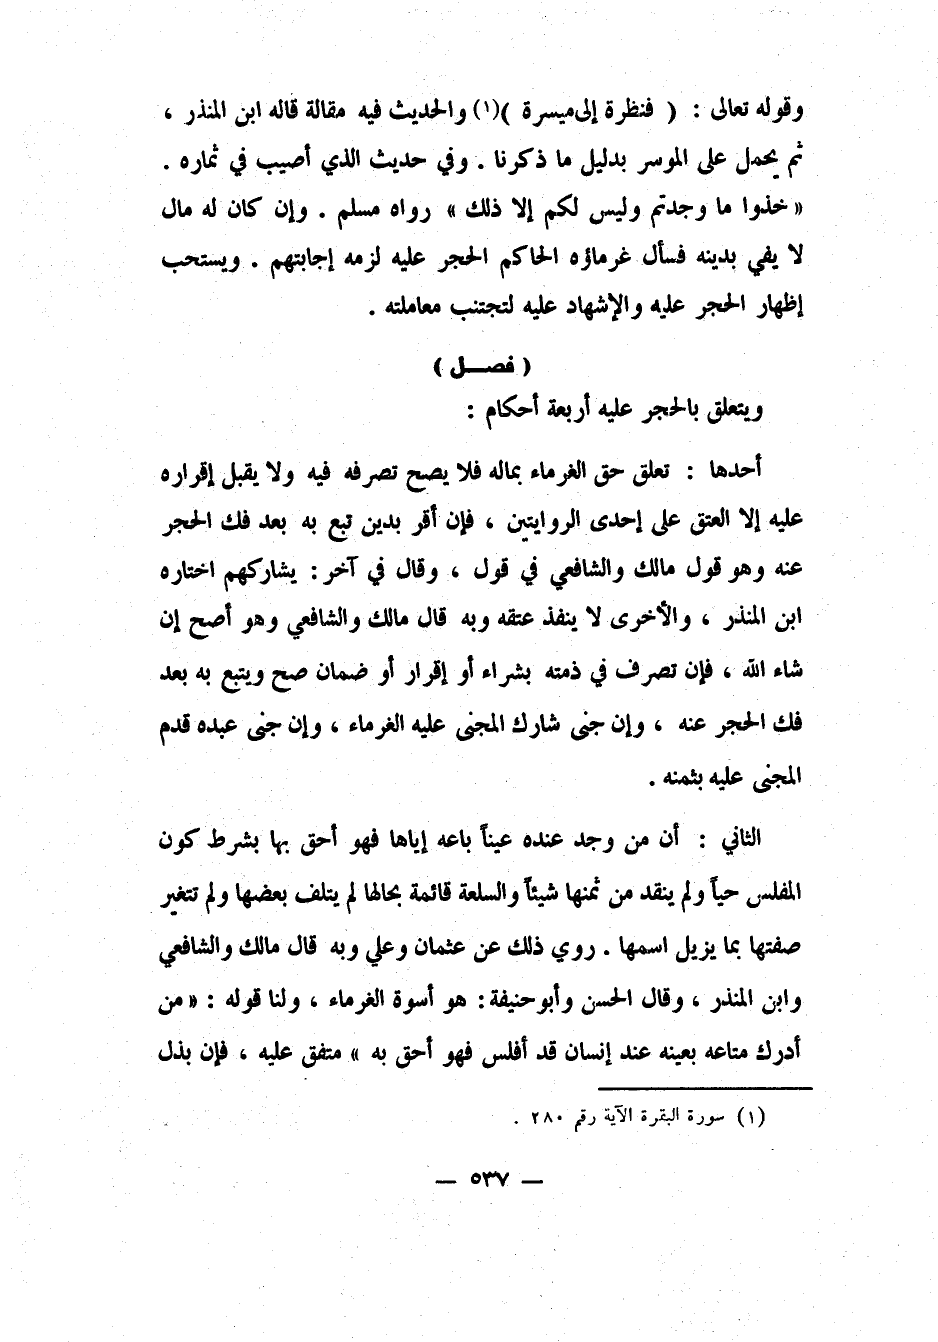 وقوله تعالى : ( فنظرة إلى ميسرة )(١) والحديث فيه مقالة قاله ابن المنذر ،
ثم يحمل على الموسر بدليل ما ذكرنا . وفي حديث الذي أصيب في ثماره .
« خذوا ما وجدتم وليس لكم إلا ذلك » رواه مسلم . وإن كان له مال
لا يفي بدينه فسأل غرماؤه الحاكم الحجر عليه لزمه إجابتهم . ويستحب
إظهار الحجر عليه والإشهاد عليه لتجتنب معاملته .
( فصـــل )
ويتعلق بالحجر عليه أربعة أحكام :
أحدها : تعلق حق الغرماء بماله فلا يصح تصرفه فيه ولا يقبل إقراره
عليه إلا العتق على إحدى الروايتين ، فإن أقر بدين تبع به بعد فك الحجر
عنه وهو قول مالك والشافعي في قول ، وقال في آخر : يشاركهم اختاره
ابن المنذر ، والأخرى لا ينفذ عتقه وبه قال مالك والشافعي وهو أصح إن
شاء الله ، فإن تصرف في ذمته بشراء أو إقرار أو ضمان صح ويتبع به بعد
فك الحجر عنه ، وإن جنى شارك المجنى عليه الغرماء ، وإن جنى عبده قدم
المجنى عليه بثمنه .
الثاني : أن من وجد عنده عيناً باعه إياها فهو أحق بها بشرط كون
المفلس حياً ولم ينقد من ثمنها شيئاً والسلعة قائمة بحالها لم يتلف بعضها ولم تتغير
صفتها بما يزيل اسمها . روي ذلك عن عثمان وعلي وبه قال مالك والشافعي
وابن المنذر ، وقال الحسن وأبو حنيفة : هو أسوة الغرماء ، ولنا قوله : « من
أدرك متاعه بعينه عند إنسان قد أفلس فهو أحق به » متفق عليه ، فإن بذل
(١) سورة البقرة الآية رقم ٢٨٠ .
— ٥٣٧ —